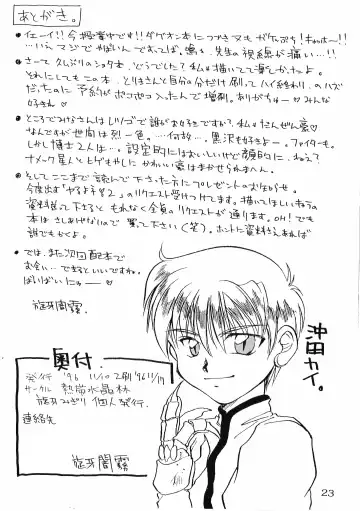 あとがき。
・イェーイ!!今授業中です!!ダグオン本につづきヌもガけぷち!きゃほー!!
…いや、マジでやばいんですってば。鳴々、先生の視線が痛い…!!
・さーて久しぶりのショタ本、どうでした?私は描いてて楽しかったよ。
それにしてもこの本、とりさんと自分の分だけ刷ってハイ終わり。のハズ
だったのに予約がポコポコ入ったんで増刷。ありがちゅー♡みんな
好きん♡
・ところでみなさんはレツゴで誰がお好きですか?私はだんぜん豪♡
なんですが世間は烈一色。…何故…黒沢も好きよー。ファイターも。
しかし博士2人は…。設定的にはおいしいけど顔的に…ねえ?
ナメック星人とヒゲもやしにかわいい豪はまかせられまへん。
・そしてここまで読んで下さった方にプレゼントのお知らせ。
今度出す「やるよネ!2」のリクエスト受けつけてます。描いてほしいキャラの
資料送って下さると もれなく全員のリクエストが通ります。OH!でも
本はさしあげないので買って下さい(笑)。ホントに資料さえあれば
誰でもかくよ。
・では、また次回配本で
お会い…できるといいですね。
ばいばいにゅー♡
旋牙闇霧
沖田カイ。
奥付
発行 '96 11/10 2刷'96 11/17
サークル 熱帯水晶林
旋牙みぎり 個人発行。
連絡先
旋牙闇霧
23